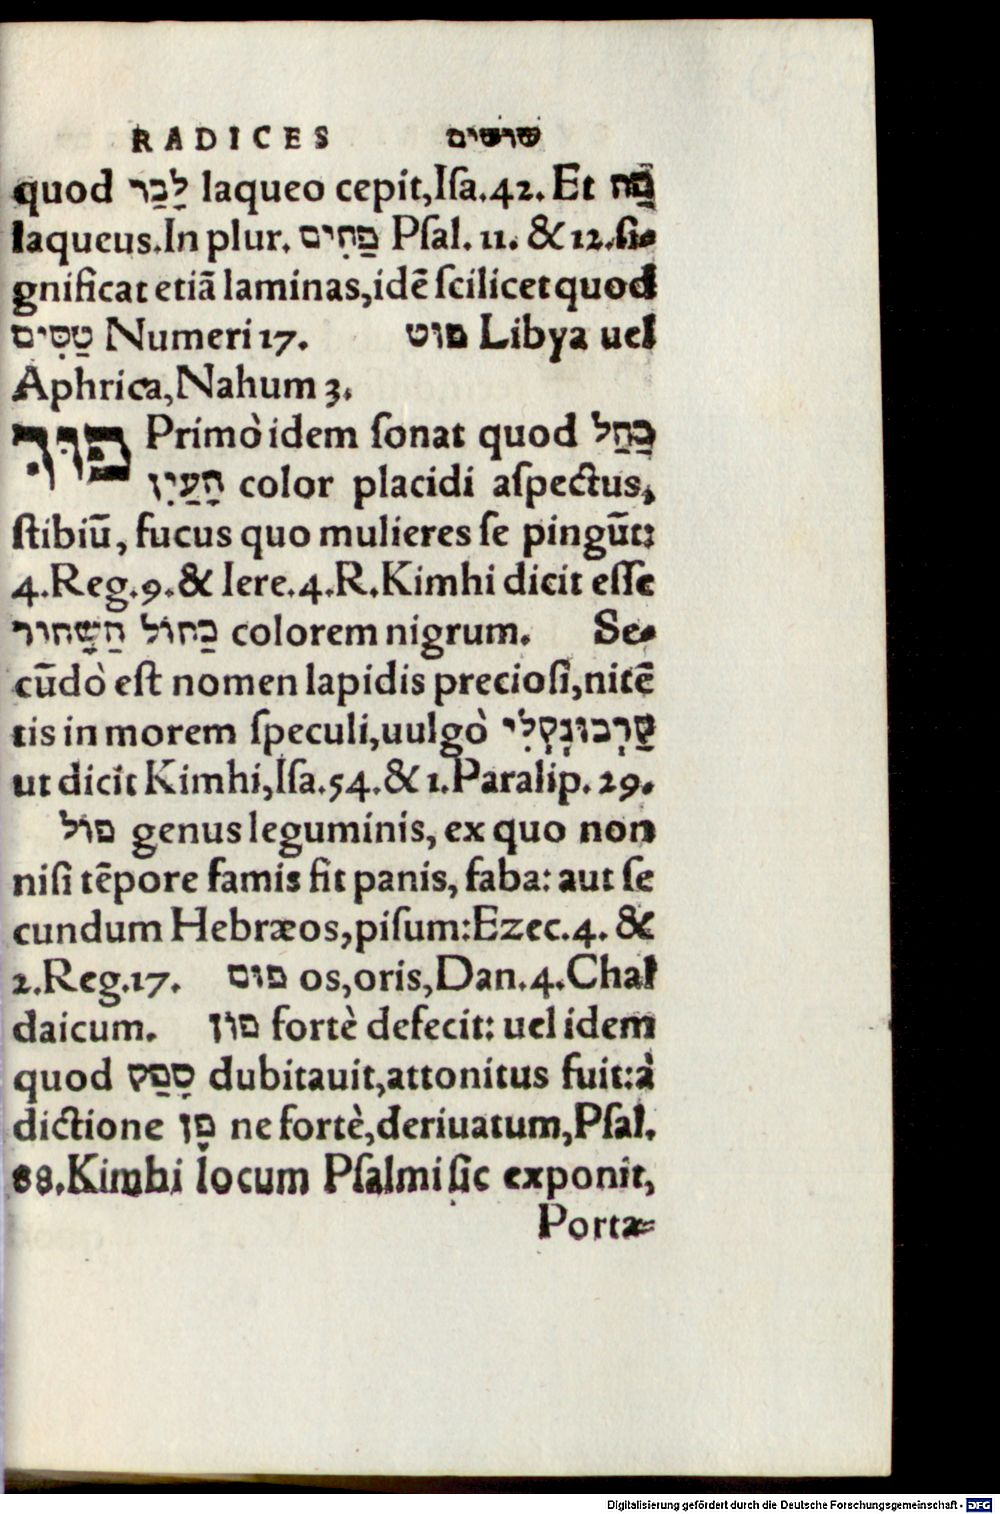 RADICES שרשים
quod לָכַד laqueo cepit,Iſa.42. Et פַּח
laqueus.In plur. פַּחִים Pſal. 11. & 12.ſi-
gnificat etiã laminas,idẽ ſcilicet quod
טַסִּים Numeri 17. פוט Libya uel
Aphrica,Nahum 3.
פוּךְ Primò idem ſonat quod כַּחַל
הָעַיִן color placidi aſpectus,
ſtibiũ, fucus quo mulieres ſe pingũt:
4.Reg.9.& Iere.4.R.Kimhi dicit eſſe
כַּחוֹל הַשָּׁחוֹר colorem nigrum. Se-
cũdò eſt nomen lapidis precioſi,nitẽ
tis in morem ſpeculi,uulgò קַרְבוּנְקְלִי
ut dicit Kimhi,Iſa.54.& 1.Paralip.29.
פול genus leguminis, ex quo non
niſi tẽpore famis fit panis, faba: aut ſe
cundum Hebræos,piſum:Ezec.4. &
2.Reg.17. פום os,oris,Dan.4.Chal
daicum. פון fortè defecit: uel idem
quod סָפַק dubitauit,attonitus fuit:à
dictione פֶּן ne fortè,deriuatum,Pſal.
88.Kimhi locum Pſalmi ſic exponit,
Porta=
Digitalisierung gefördert durch die Deutsche Forschungsgemeinschaft - DFG